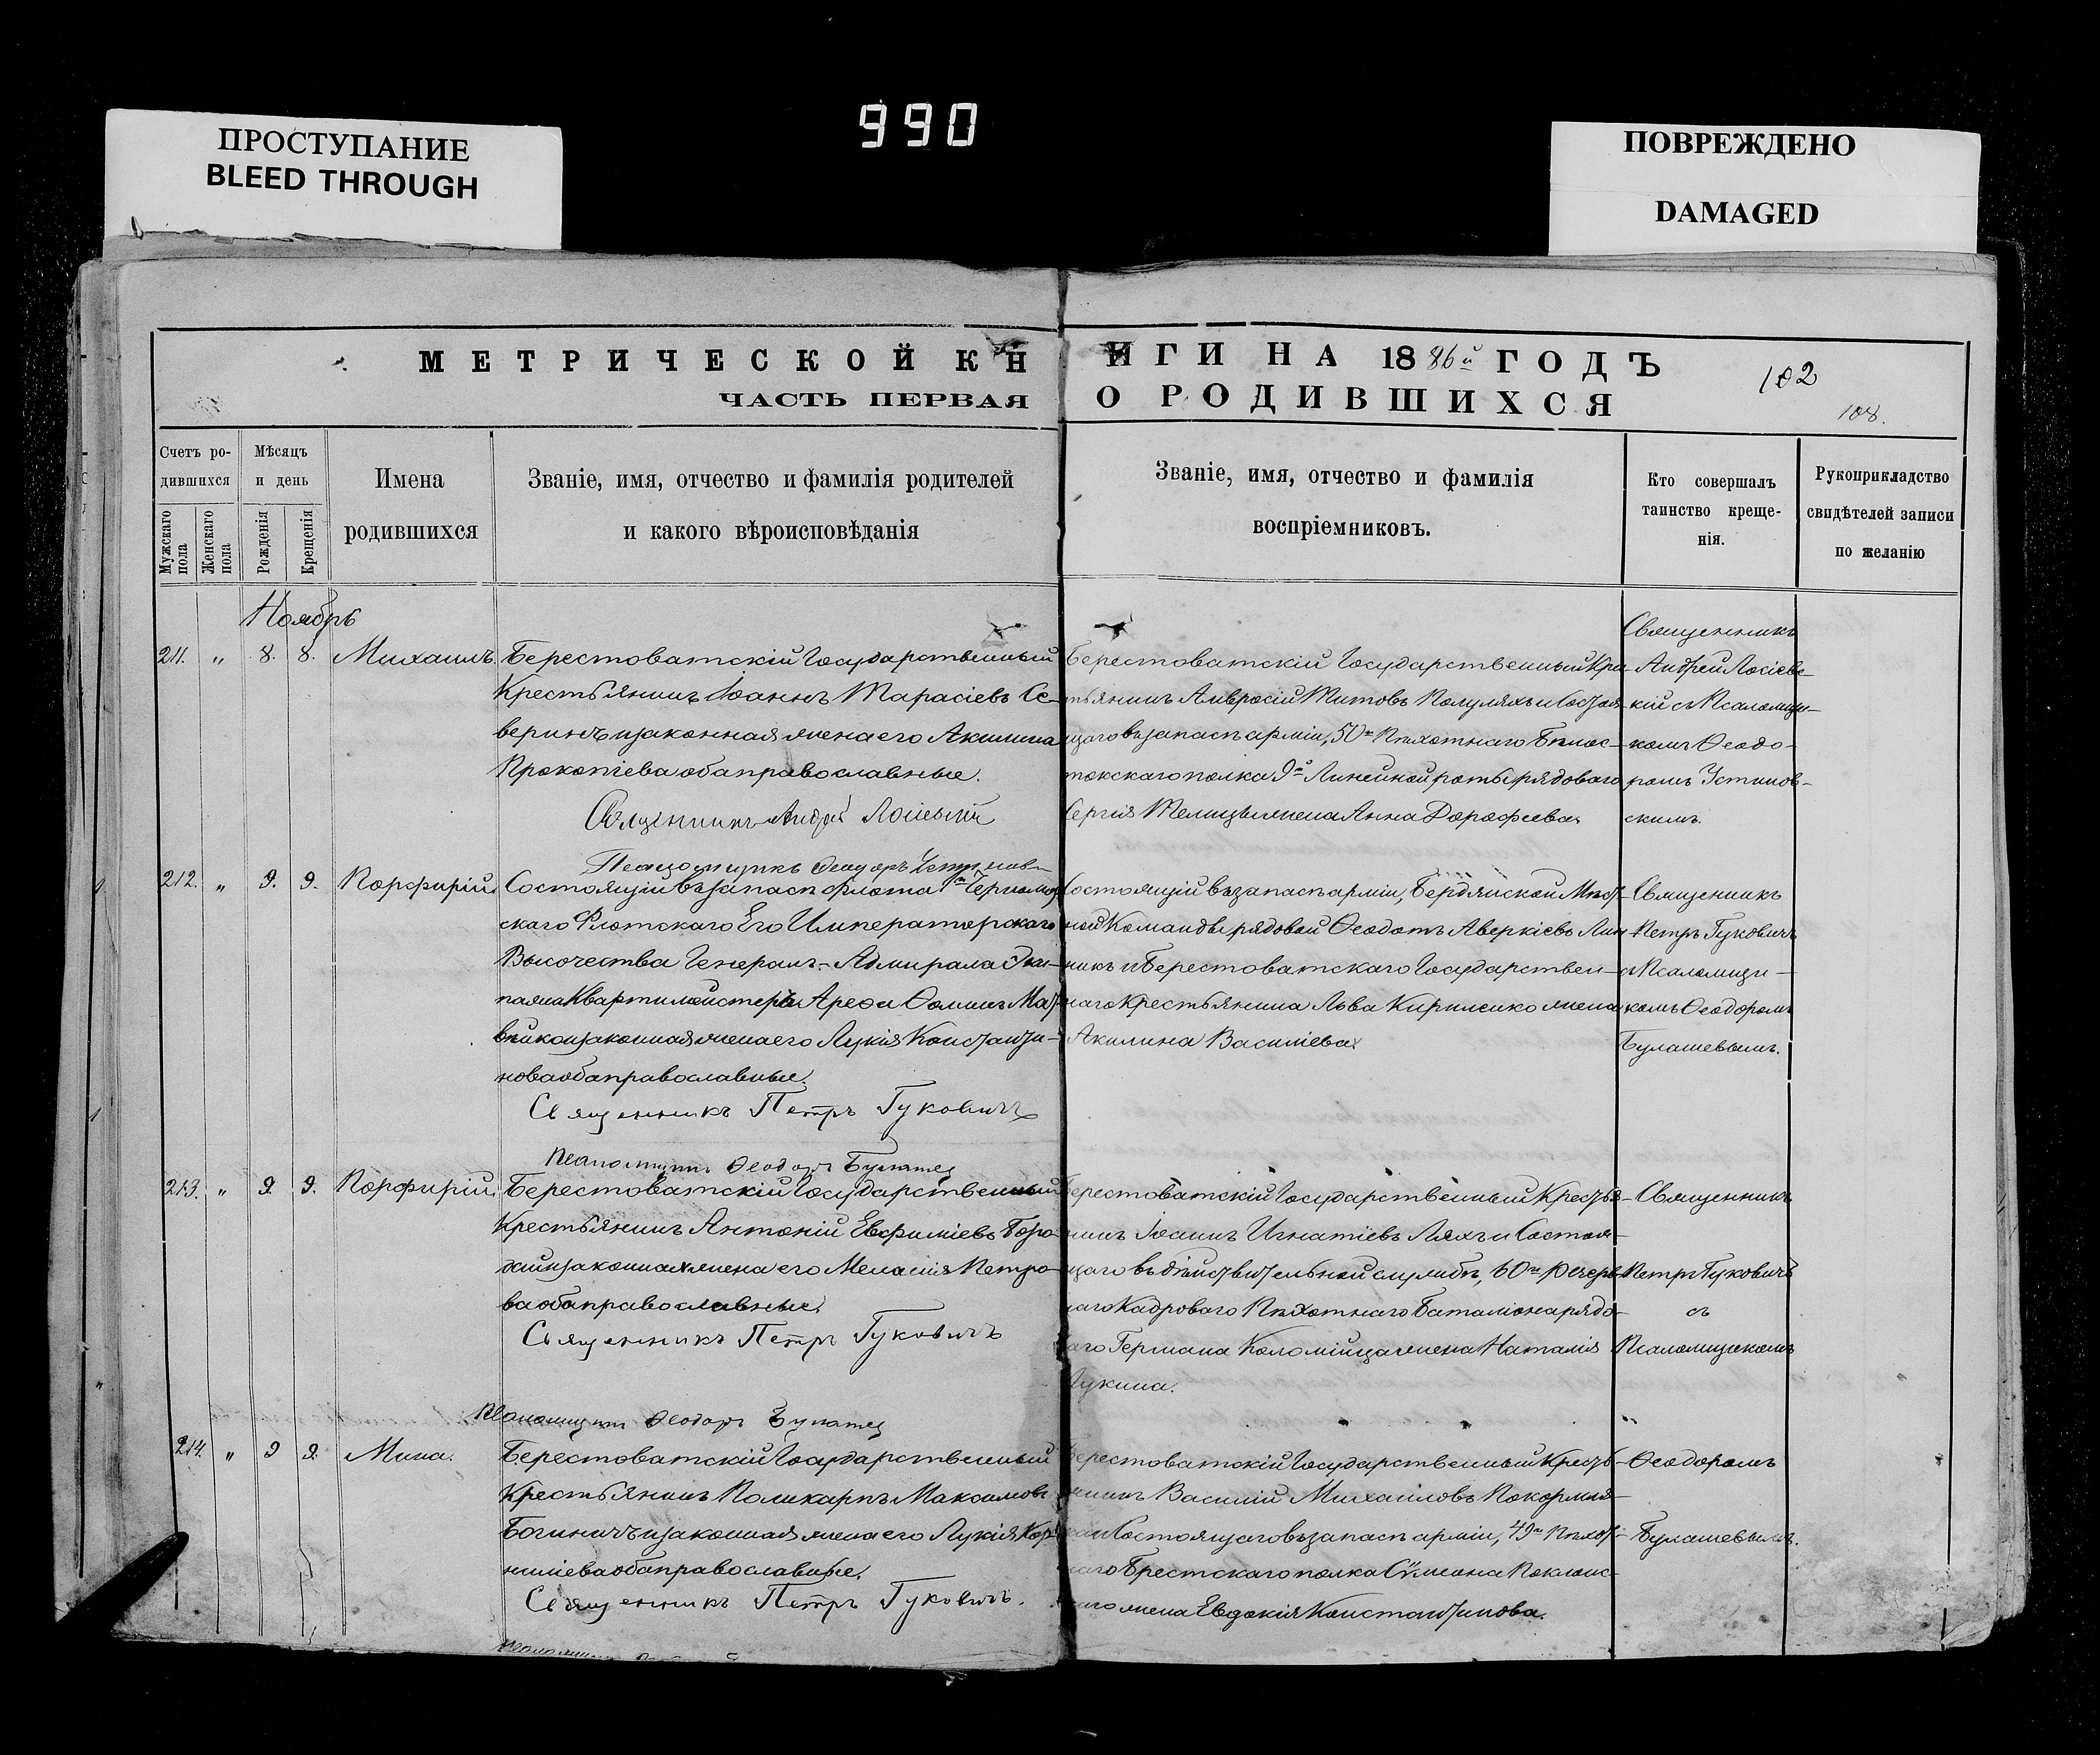 990
ПРОСТУПАНИЕ
BLEED THROUGH
ПОВРЕЖДЕНО
DAMAGED
МЕТРИЧЕСКОЙ КНИГИ НА 1886й ГОДЪ
102
ЧАСТЬ ПЕРВАЯ О РОДИВШИХСЯ
108.
Счетъ ро-
дившихся
Мужскаго пола
Женскаго пола
Мѣсяцъ
и день
Рожденія
Крещенія
Имена
родившихся
Званіе, имя, отчество и фамилія родителей
и какого вѣроисповѣданія
Званіе, имя, отчество и фамилія
воспріемниковъ.
Кто совершалъ
таинство креще-
нія.
Рукоприкладство
свидѣтелей записи
по желанію
Ноябрь
211. " 8. 8. Михаилъ.
Берестоватскій Государственный
Крестьянинъ Іоаннъ Тарасіевъ Се-
веринъ и законная жена его Акилина
Прокопіева оба православные.
Священникъ Андрей Лосіевскій
Псаломщикъ Ѳеодоръ
Берестоватскій Государственный Крес
тьянинъ Амвросій Титовъ Полуляхъ и Состоя-
щаго въ запасѣ арміи, 50го Пѣхотнаго Бѣлос-
токскаго полка 9й Линейной роты рядоваго
Сергія Телицы жена Анна Дорофеева.
Священникъ
Андрей Лосіевс-
кій съ Псаломщи-
комъ Ѳеодо-
ромъ Устинов-
скимъ.
212. " 9. 9. Порфирій.
Состоящій въ запасѣ флота 1го Черномор
скаго Флотскаго Его Императорскаго
Высочества Генералъ-Адмирала Эки-
пажа Квартирмейстеръ Арефа Ѳоминъ Мат-
вѣйко и законная жена его Лукія Константи-
нова оба православные.
Священникъ Петръ Гуковичъ
Псаломщикъ Ѳеодоръ Булашев
Состоящій въ запасѣ арміи, Бердянской Мѣст-
ной Команды рядовой Ѳеодотъ Аверкіевъ Лин
никъ и Берестоватскаго Государствен-
наго Крестьянина Льва Кириленко жена
Акилина Василіева.
Священникъ
Петръ Гуковичъ
съ Псаломщи-
комъ Ѳеодоромъ
Булашевымъ.
213. " 9. 9. Порфирій.
Берестоватскій Государственный
Крестьянинъ Антоній Евфиміевъ Боро-
дай и законная жена его Меланія Петро-
ва оба православные.
Священникъ Петръ Гуковичъ
Псаломщикъ Ѳеодоръ Булашев
Берестоватскій Государственный Крестья-
нинъ Іоаннъ Игнатіевъ Ляхъ и Состоя-
щаго въ дѣйствительной службѣ, 60го Резерв
наго Кадроваго Пѣхотнаго Баталіона рядо-
ваго Германа Коломійца жена Наталія
Лукина.
Священникъ
Петръ Гуковичъ
съ
Псаломщикомъ
214. " 9 9. Мина.
Берестоватскій Государственный
Крестьянинъ Поликарпъ Максимовъ
Богиничъ и законная жена его Лукія Кор-
ниліева оба православные.
Священникъ Петръ Гуковичъ.
Берестоватскій Государственный Кресть-
янинъ Василій Михаиловъ
Состоящаго въ запасѣ арміи, 49го Пѣхот-
наго Брестскаго полка Сѵмеона Поклонс-
каго жена Евдокія Константинова.
Ѳеодоромъ
Булашевымъ.